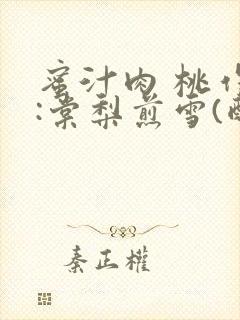 蜜汁肉桃作
:棠梨煎雪(酥
秦正權